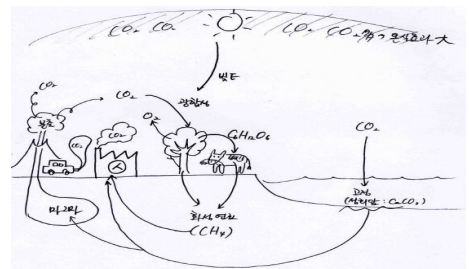 CO₂ CO₂ CO₂ CO₂ 온실효과 大
빛E
CO₂ CO₂ 광합성
분출 O₂ C₆H₁₂O₆
CO₂ CO₂ CO₂
고정
(석회암 : CaCO₃)
마그마 화석연료
(CH₄)